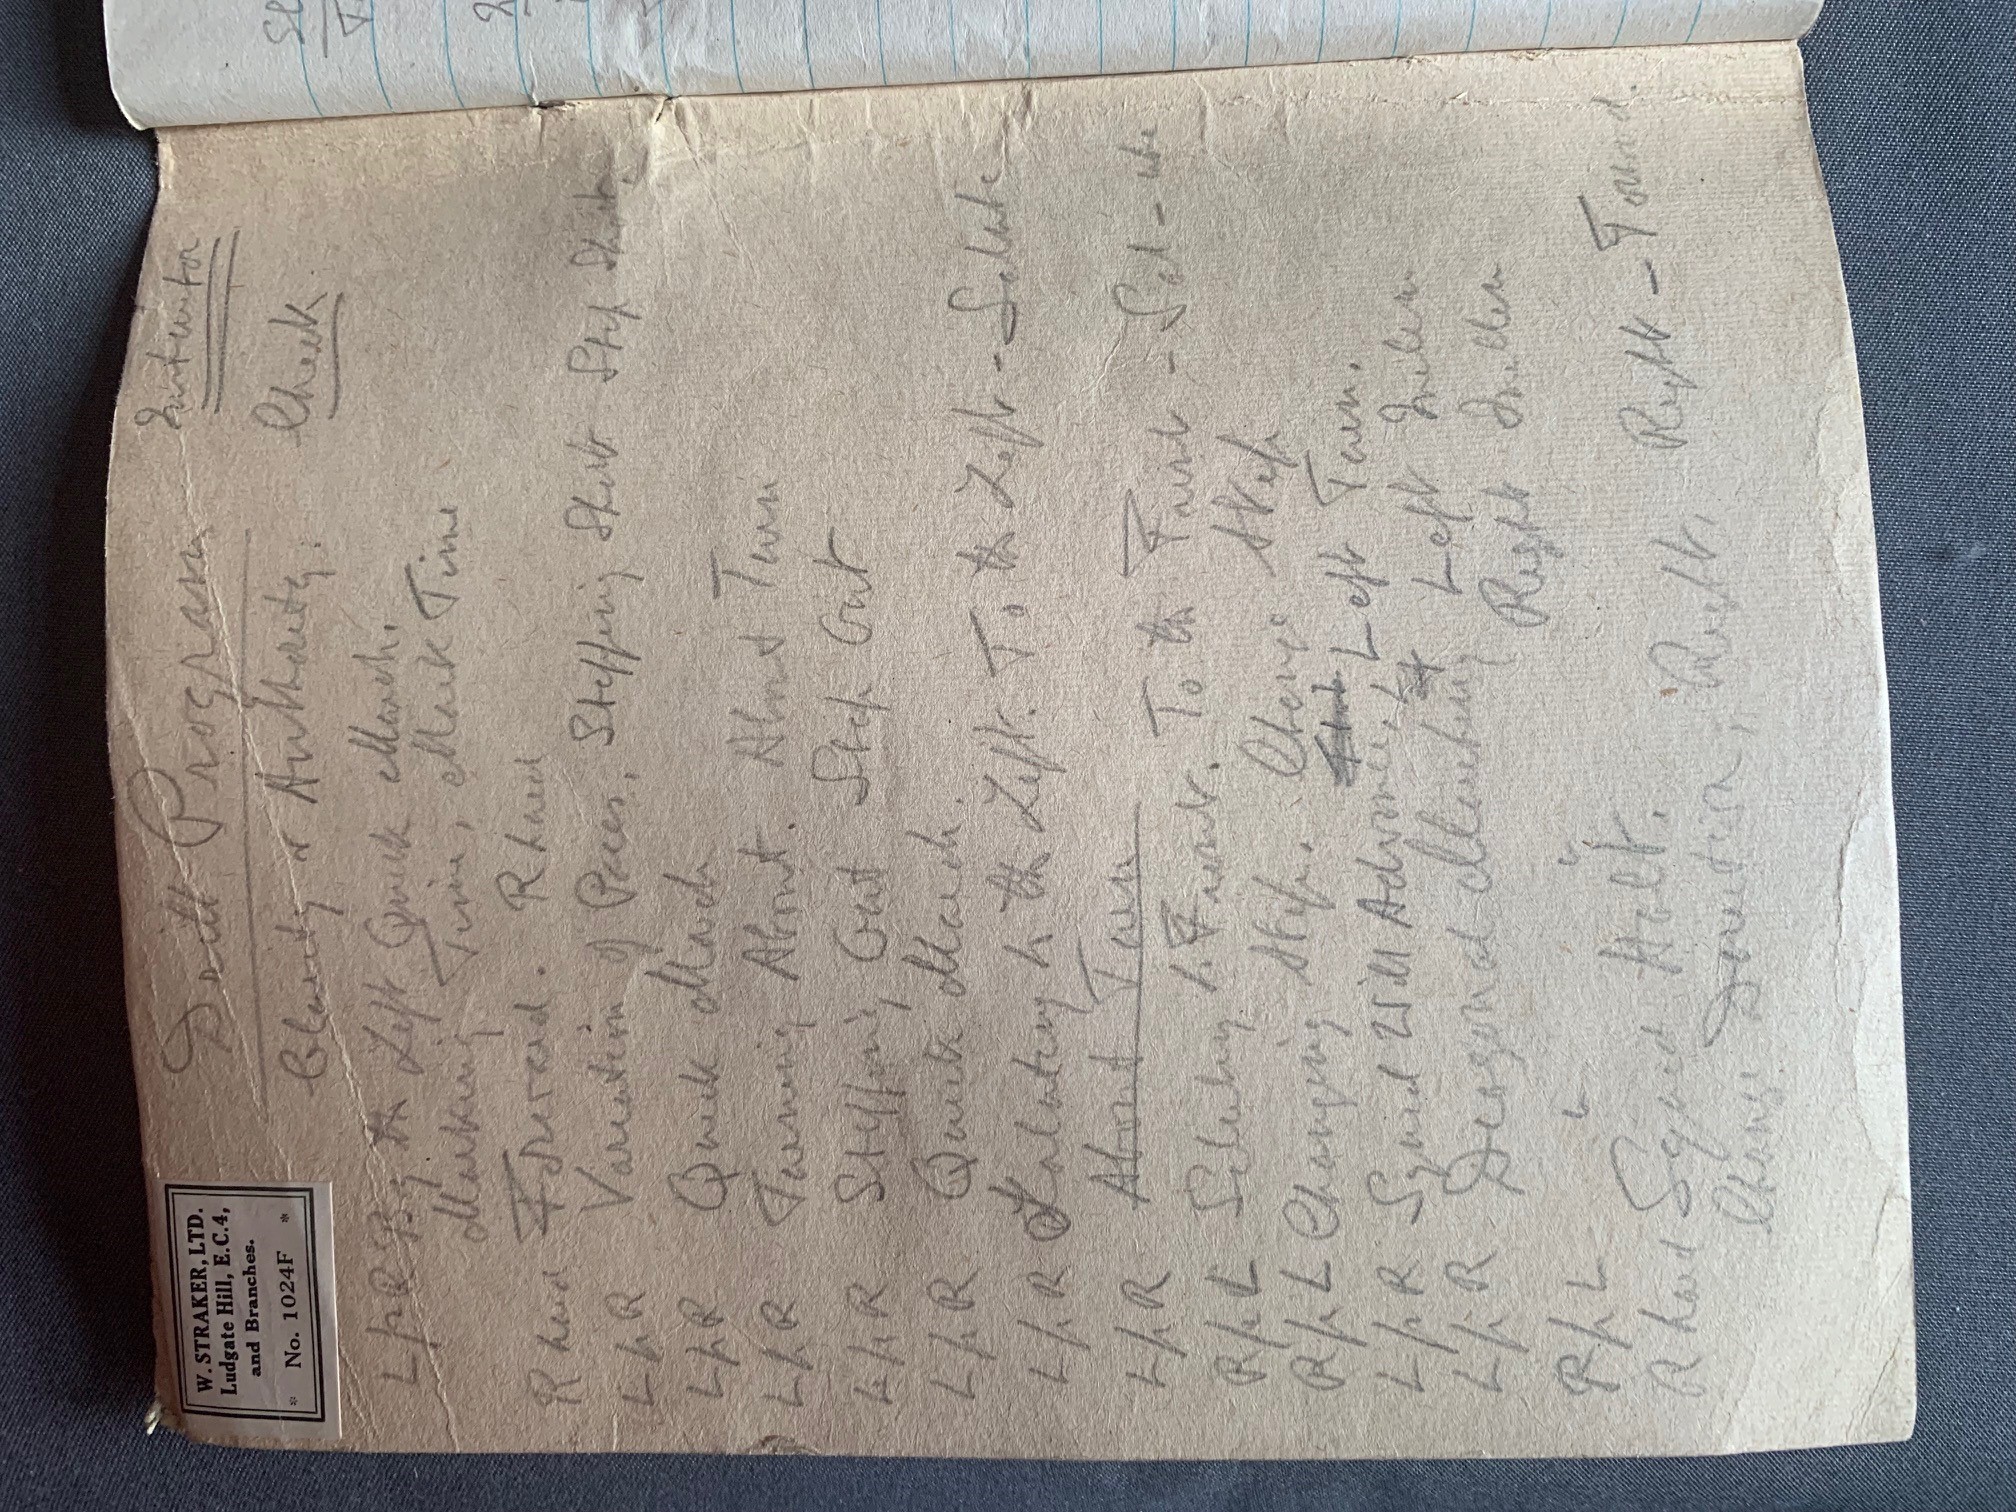 W. STRAKER, LTD.
Ludgate Hill, E.C.4,
and Branches.
* No. 1024F *
Drill Program
Clarity & Authority. Check
L/hR By the Left Quick March.
Marking Time, Mark Time
R heel Forward. R heel
L h R Variation of Paces. Stepping Short Step Short
L h R Quick March
L h R Turning About. About Turn
L h R Stepping Out Step Out
L h R Quick March.
L h R Saluting to the Left. To the Left - Salute
L h R About Turn
R h L Saluting to Front. To the Front - Sal-ute
R h L Changing Step. Change Step
L h R Squad Will Advance, Left Turn.
L h R Diagonal Marching Left Incline
R h L Right Incline
R heel Squad Halt.
Change Direction, Right. Right - Form.